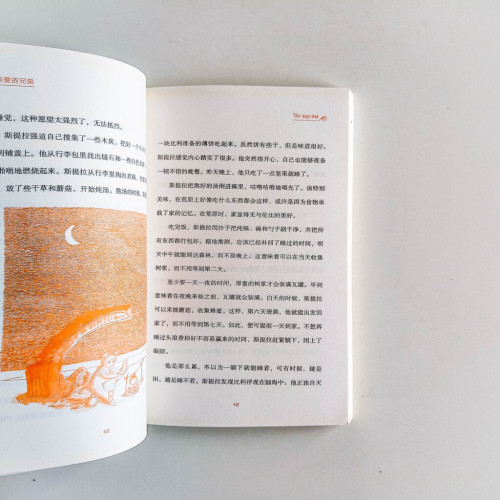 亲爱的兄弟
睡觉，这种愿望太强烈了，无法抵挡。
斯提拉强迫自己搜集了一些木块，
铺盖上。他从行李包里找出燧石和一些
啪啪地燃烧起来。斯提拉从行李里掏出
放了些干草和蘑菇，开始炖汤。熬汤的时候，
The end end
一块比利准备的薄饼吃起来。虽然饼有些干，但是味道很好。
斯提拉感觉内心踏实了很多。他突然很开心，自己也能够准备
一顿不错的晚餐。昨天晚上，他只吃了一点坚果就睡了。
斯提拉把熬好的汤倒进碗里，咕噜咕噜地喝光了。汤特别
美味，在荒原上好像吃什么东西都会这样，或许是因为食物承
载了家的记忆，在荒原时，家显得无与伦比的美好。
吃完饭，斯提拉用沙子把炖锅、碗和勺子刷干净，并把所
有东西都打包好。据他推测，应该已经补回了睡过的时间，明
天中午就能到达森林，而不是晚上。这意味着可以在当天收集
树浆，而不用等到第二天。
至少要一天一夜的时间，厚重的树浆才会装满瓦罐。早到
意味着在夜晚来临之前，瓦罐就会装满。白天的时候，斯提拉
可以采摘蘑菇，收集蜂蜜。这样，第六天清晨，他就能出发回
家了，而不用等到第七天。如此，便可提前一天到家。不想再
睡过头浪费掉好不容易赢来的时间，斯提拉赶紧躺下，闭上了
眼睛。
他是那么累，本以为一躺下就能睡着，可有时候，越是
困，越是睡不着。斯提拉发现比利浮现在脑海中：他正独自天
68